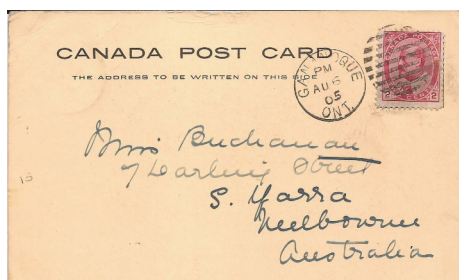 CANADA POST CARD
THE ADDRESS TO BE WRITTEN ON THIS SIDE
GANANOQUE
PM
AU 6
05
ONT.
2 2
Miss Buchanan
7 Darling Street
S. Yarra
Melbourne
Australia
15